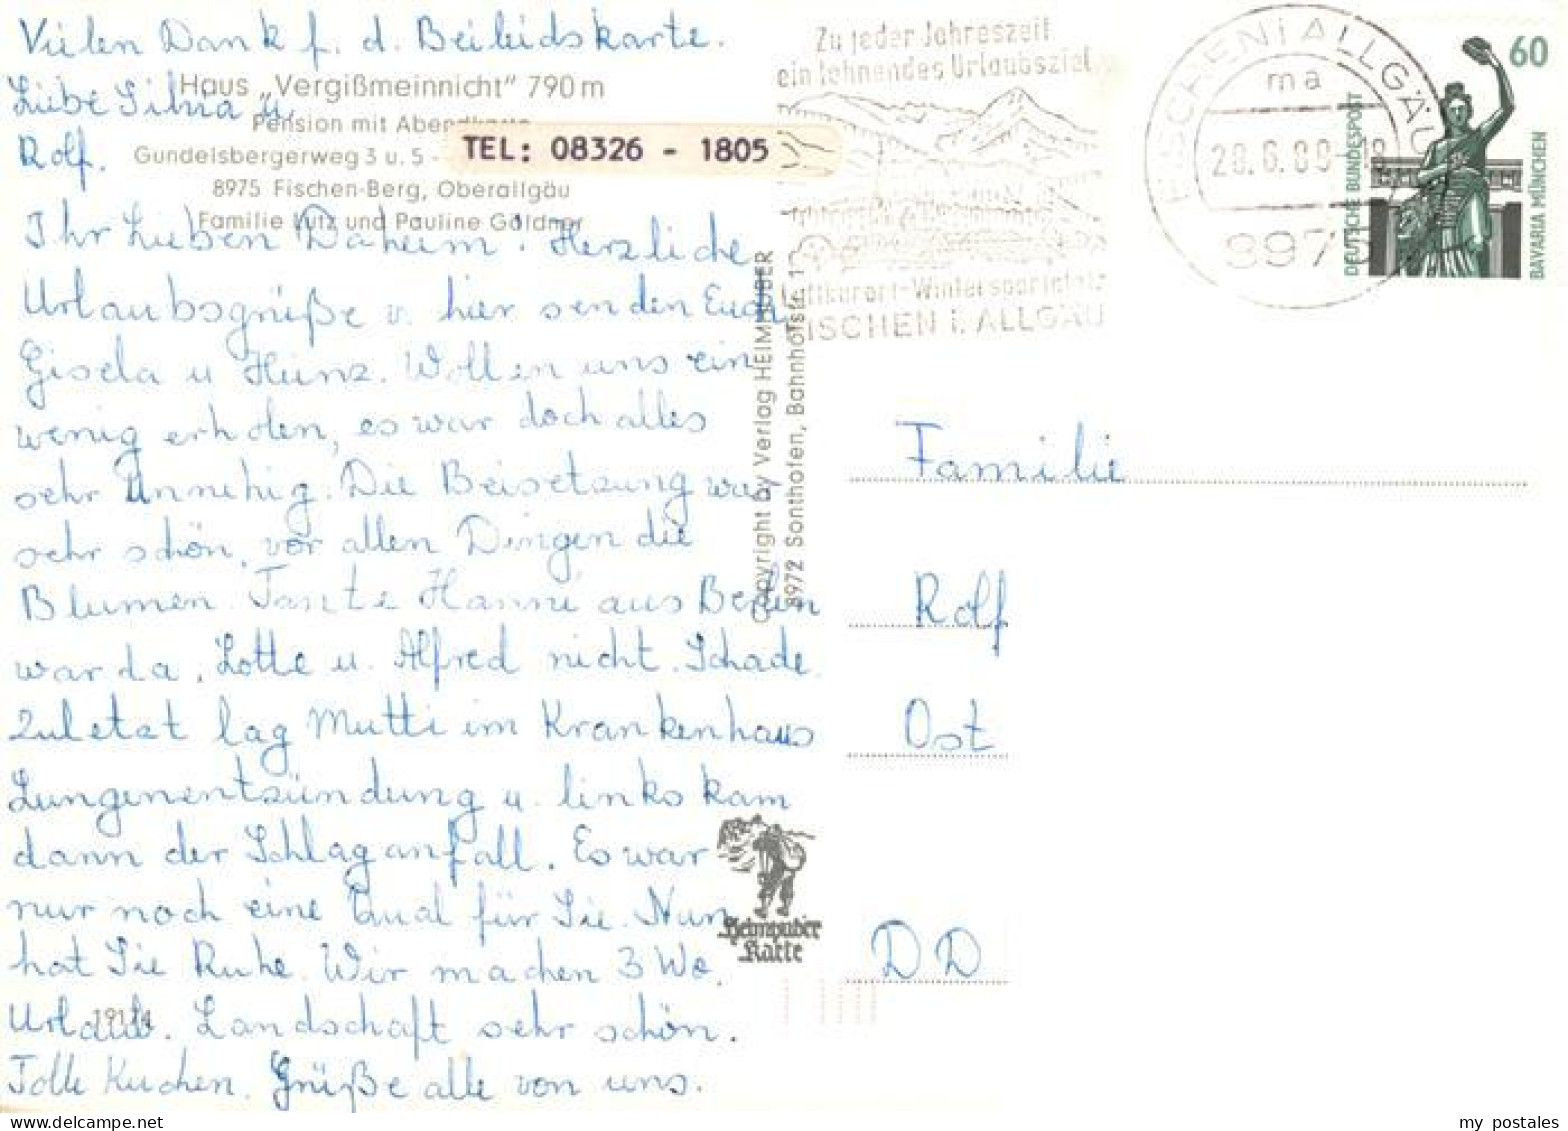 Vielen Dank f. d. Beileidskarte.
Haus „Vergißmeinnicht" 790 m
Liebe Silvia u.
Pension mit
Rolf.
Gundelsbergerweg 3 u. 5 -
TEL: 08326 - 1805
8975 Fischen-Berg, Oberallgäu
Familie Lutz und Pauline Göldner
Ihr Lieben Daheim! Herzliche
Urlaubsgrüße v. hier senden Euch
Gisela u Heinz. Wollen uns ein
wenig erholen, es war doch alles
sehr unruhig. Die Beisetzung war
sehr schön, vor allen Dingen die
Blumen. Tante Hanni aus Berlin
war da, Lotte u. Alfred nicht. Schade.
Zuletzt lag Mutti im Krankenhaus
Lungenentzündung u. links kam
dann der Schlaganfall. Es war
nur noch eine Qual für Sie. Nun
hat Sie Ruhe. Wir machen 3 Wo.
Urlaub. Landschaft sehr schön.
Tolle Kuchen. Grüße alle von uns.
Copyright by Verlag HEIMHUBER
8972 Sonthofen, Bahnhofstr.
Heimhuber
Karte
Zu jeder Jahreszeit
ein lohnendes Urlaubsziel
Luftkurort-Wintersportplatz
FISCHEN i. ALLGÄU
FISCHEN i ALLGÄU
ma
8975
60
DEUTSCHE BUNDESPOST
BAVARIA MÜNCHEN
Familie
Rolf
Ost
DD
my postales